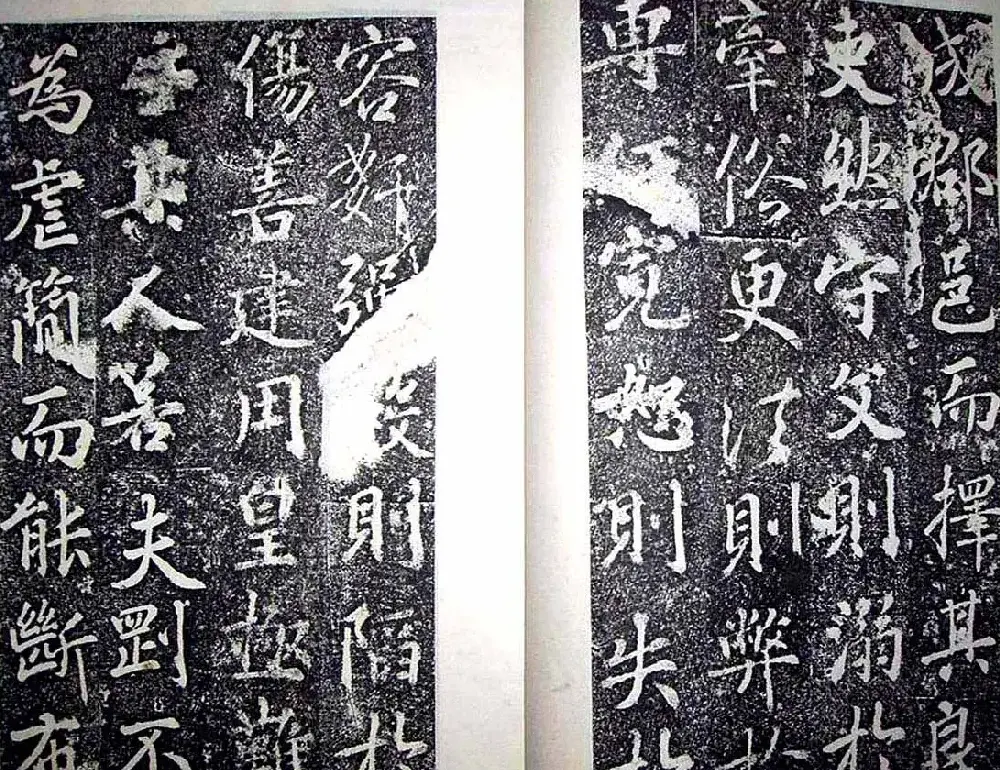 邑而擇其良
吏然守文則溺於
牽俗更法則弊於
專寬恕則失於
容姧則陷於
傷善建用皇極難
乎其人若夫剛不
為虐簡而能斷